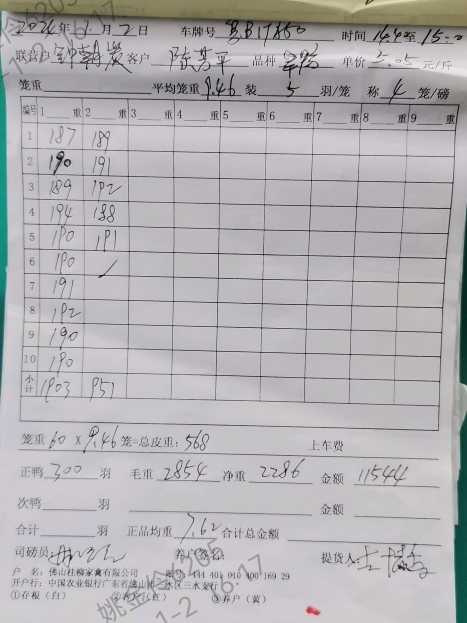 2024年1月2日 车牌号 粤B17860 时间 14:40至15:0
联营户 客户 陈芳平 品种 单价 5.05 元/斤
笼重 平均笼重 9.46 装 5 羽/笼 称 4 笼/磅
编号 1 重 2 重 3 重 4 重 5 重 6 重 7 重 8 重 9 重
1 187 189
2 190 191
3 189 192
4 194 188
5 190 191
6 190
7 191
8 192
9 190
10 190
小计 1903 951
笼重 60 X 9.46 笼=总皮重: 568 上车费
正鸭 300 羽 毛重 2854 净重 2286 金额 11544
次鸭 羽 金额
合计 羽 正品均重 7.62 合计总金额
司磅员 养户签名: 提货人:
户 名: 佛山桂柳家禽有限公司 账号: 44 401 010 400 169 29
开户行: 中国农业银行广东省佛山 水区三水支行
①存根(白) ②客户(红) ③养户(黄)